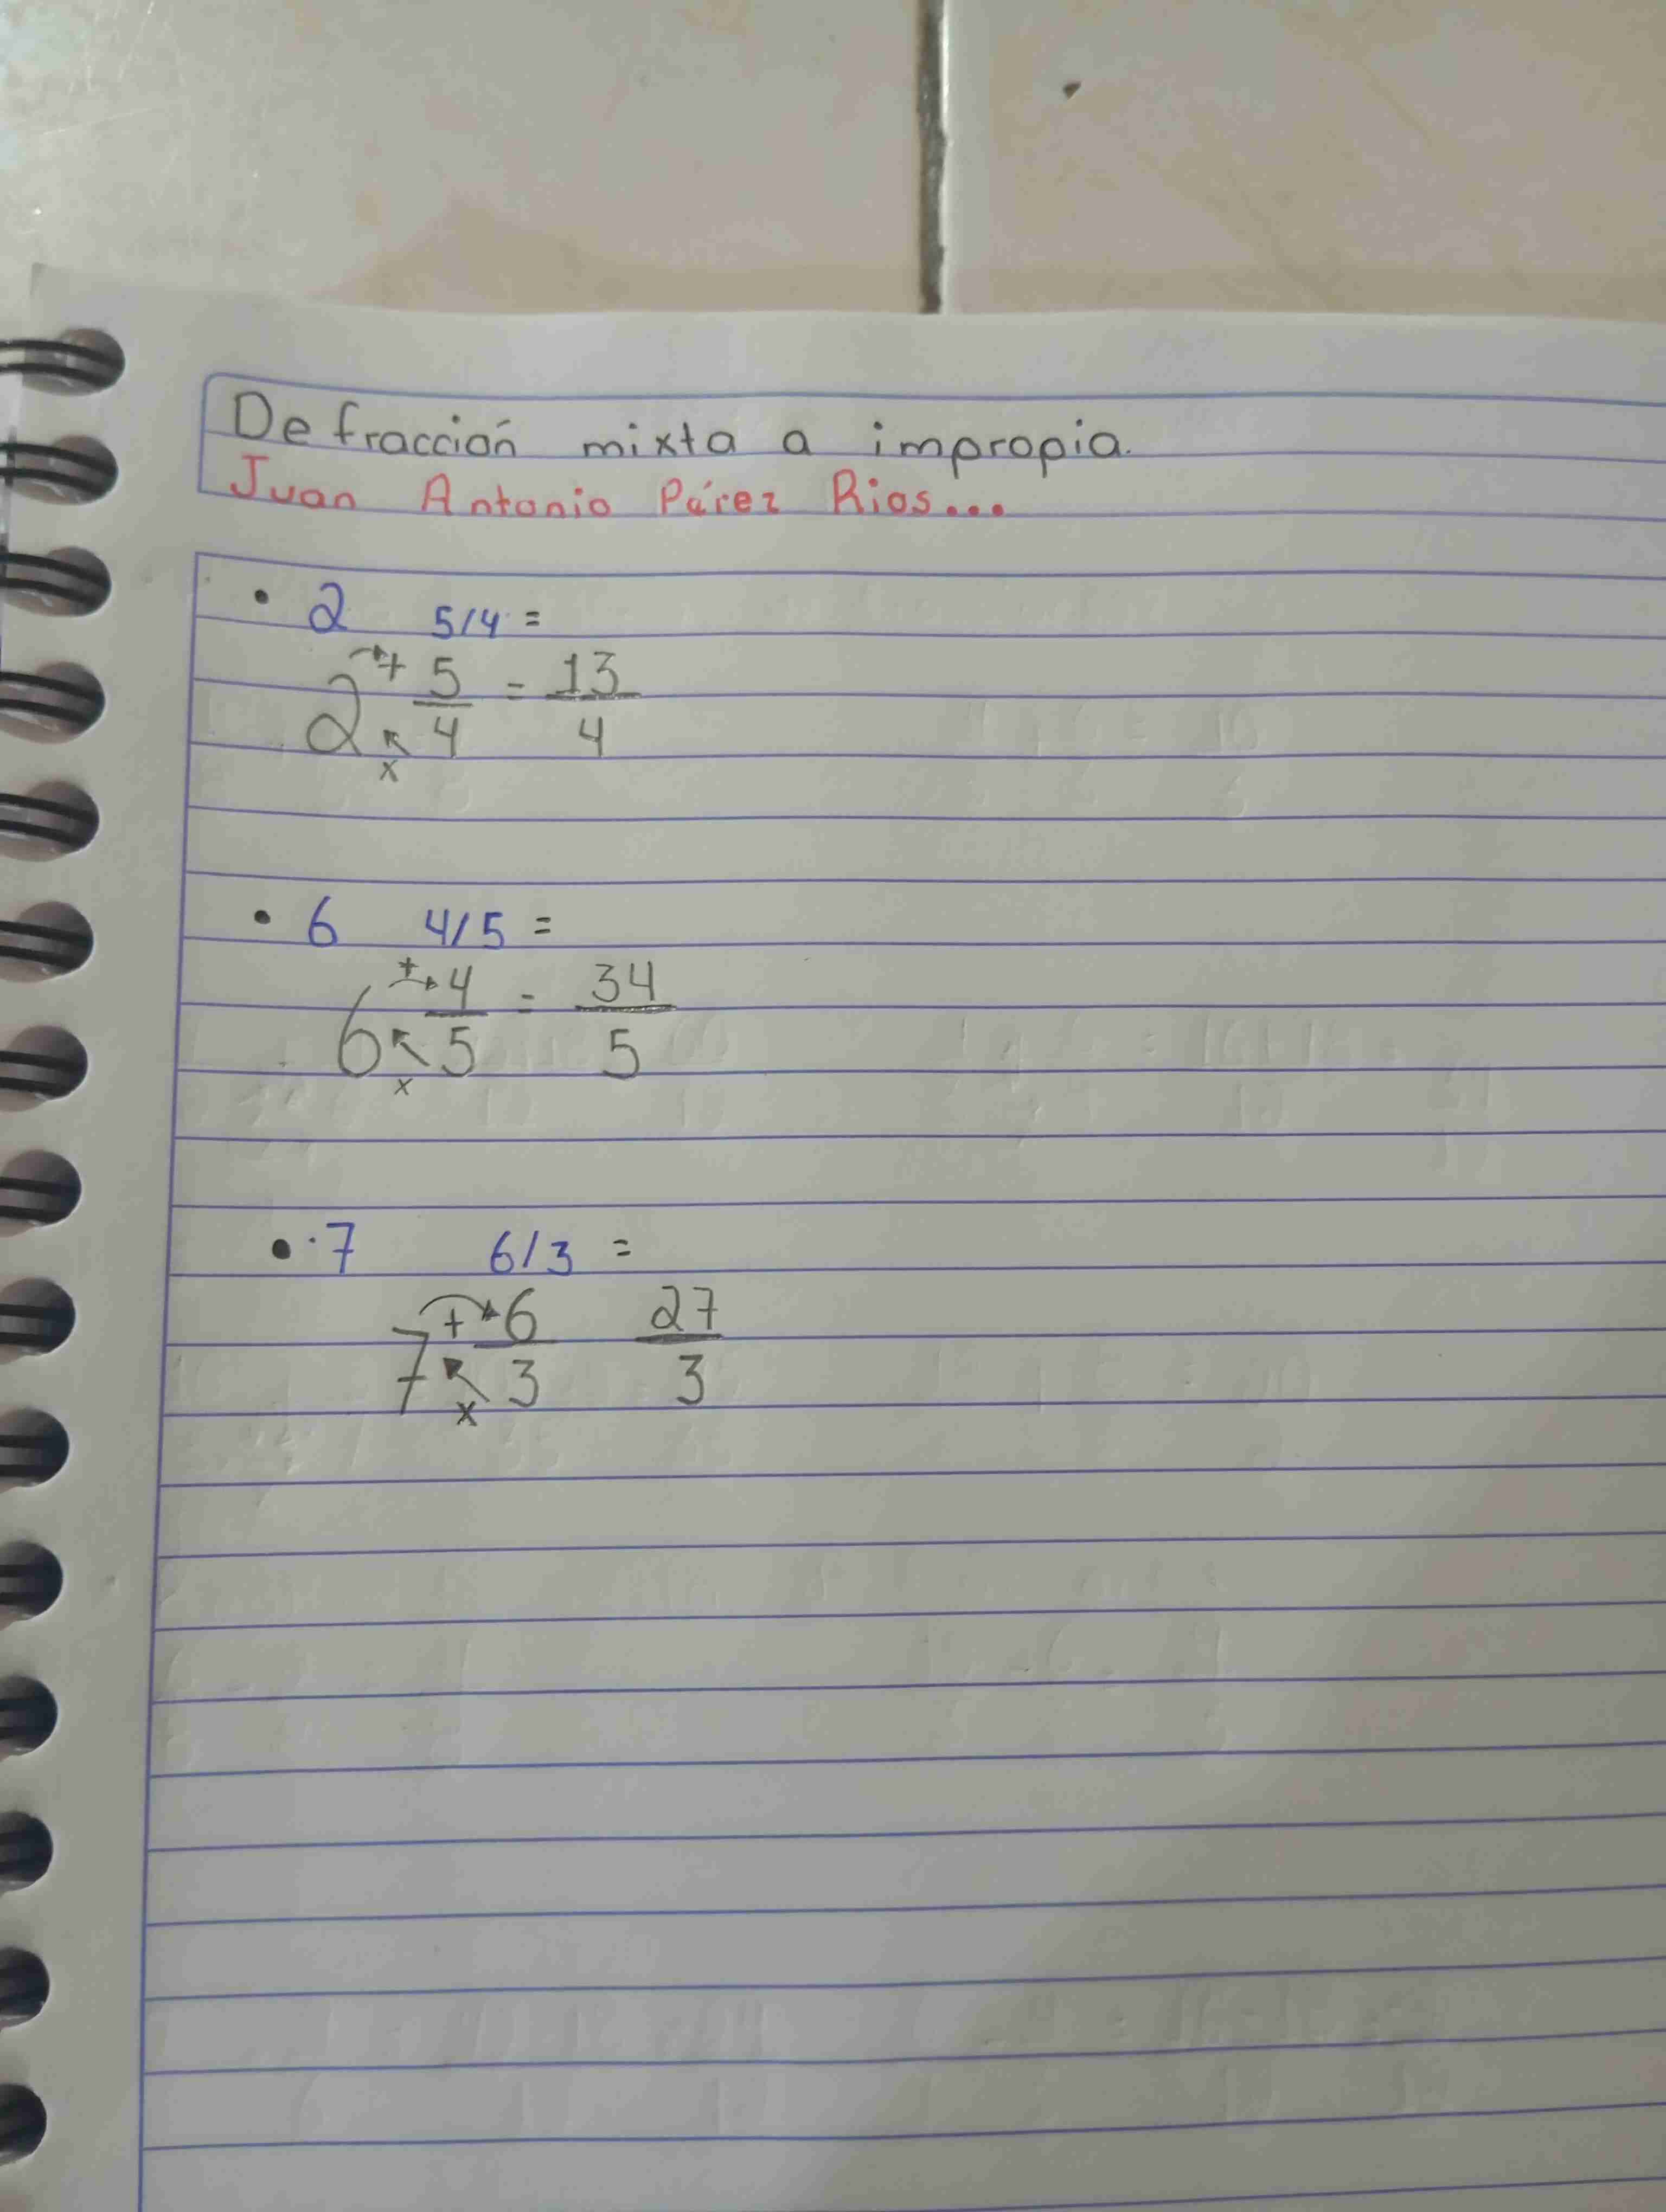 De fracción mixta a impropia.
Juan Antonio Párez Rios...
• 2 5/4 =
2 + 5/4 = 13/4
x
• 6 4/5 =
6 + 4/5 = 34/5
x
• 7 6/3 =
7 + 6/3 27/3
x